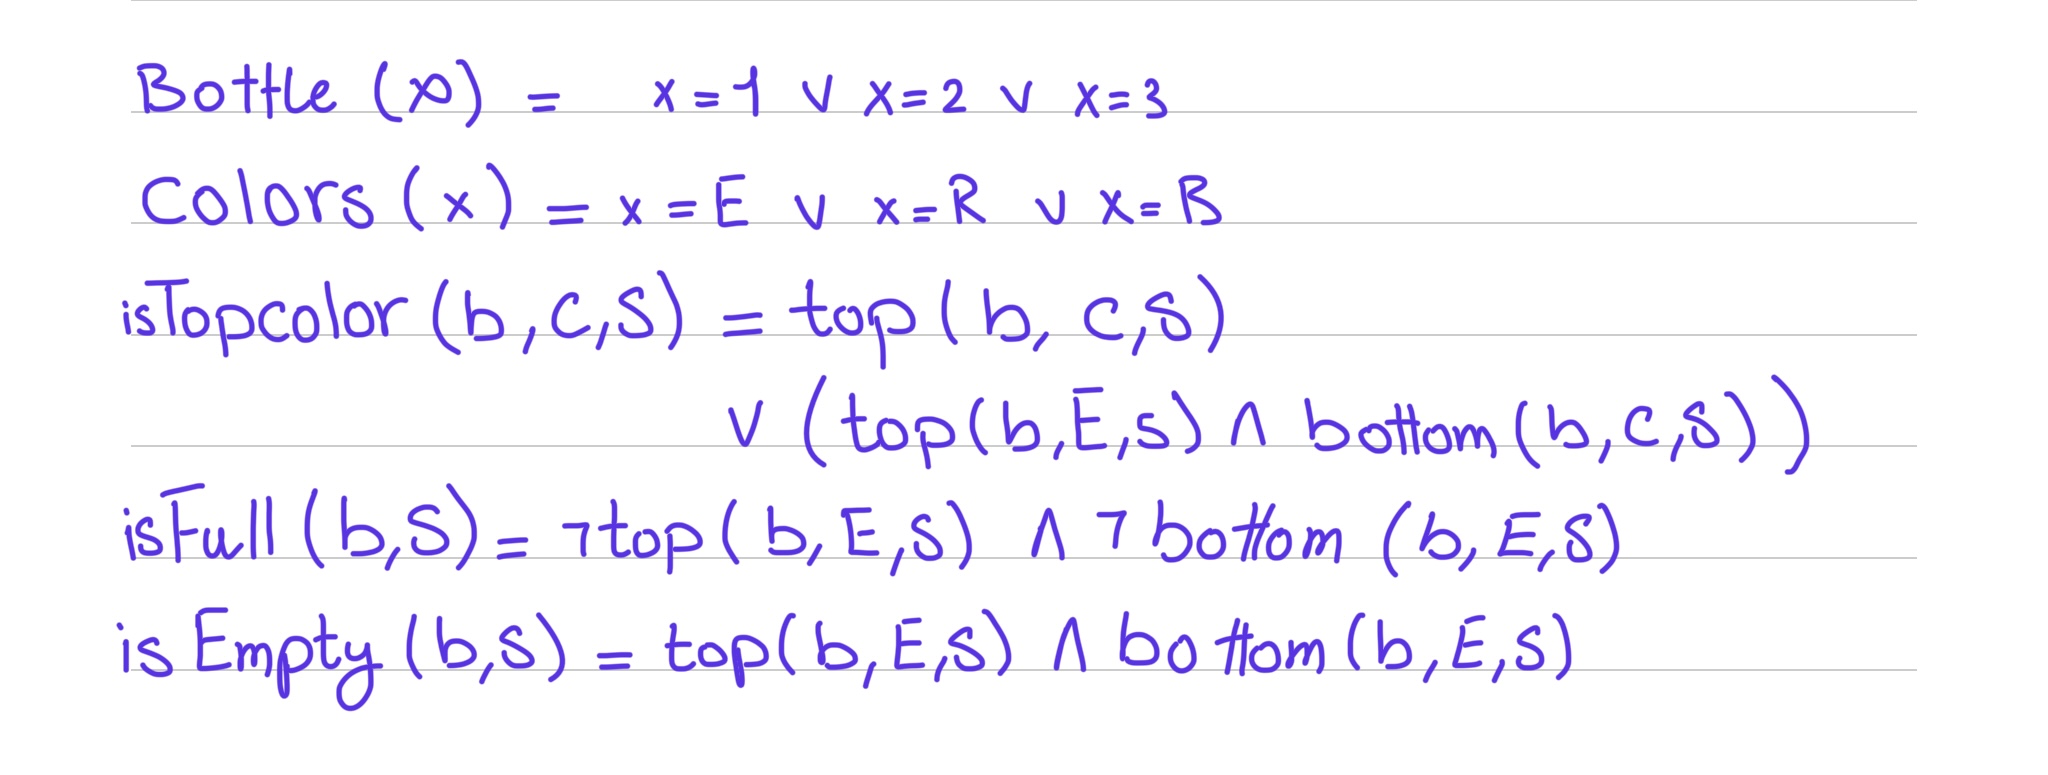 Bottle (x) = x=1 ∨ x=2 ∨ x=3
Colors (x) = x=E ∨ x=R ∨ x=B
isTopcolor (b,C,S) = top (b, C,S)
∨ (top(b,E,S) ∧ bottom(b,C,S))
isFull (b,S) = ¬top(b,E,S) ∧ ¬bottom (b,E,S)
is Empty (b,S) = top(b,E,S) ∧ bottom(b,E,S)